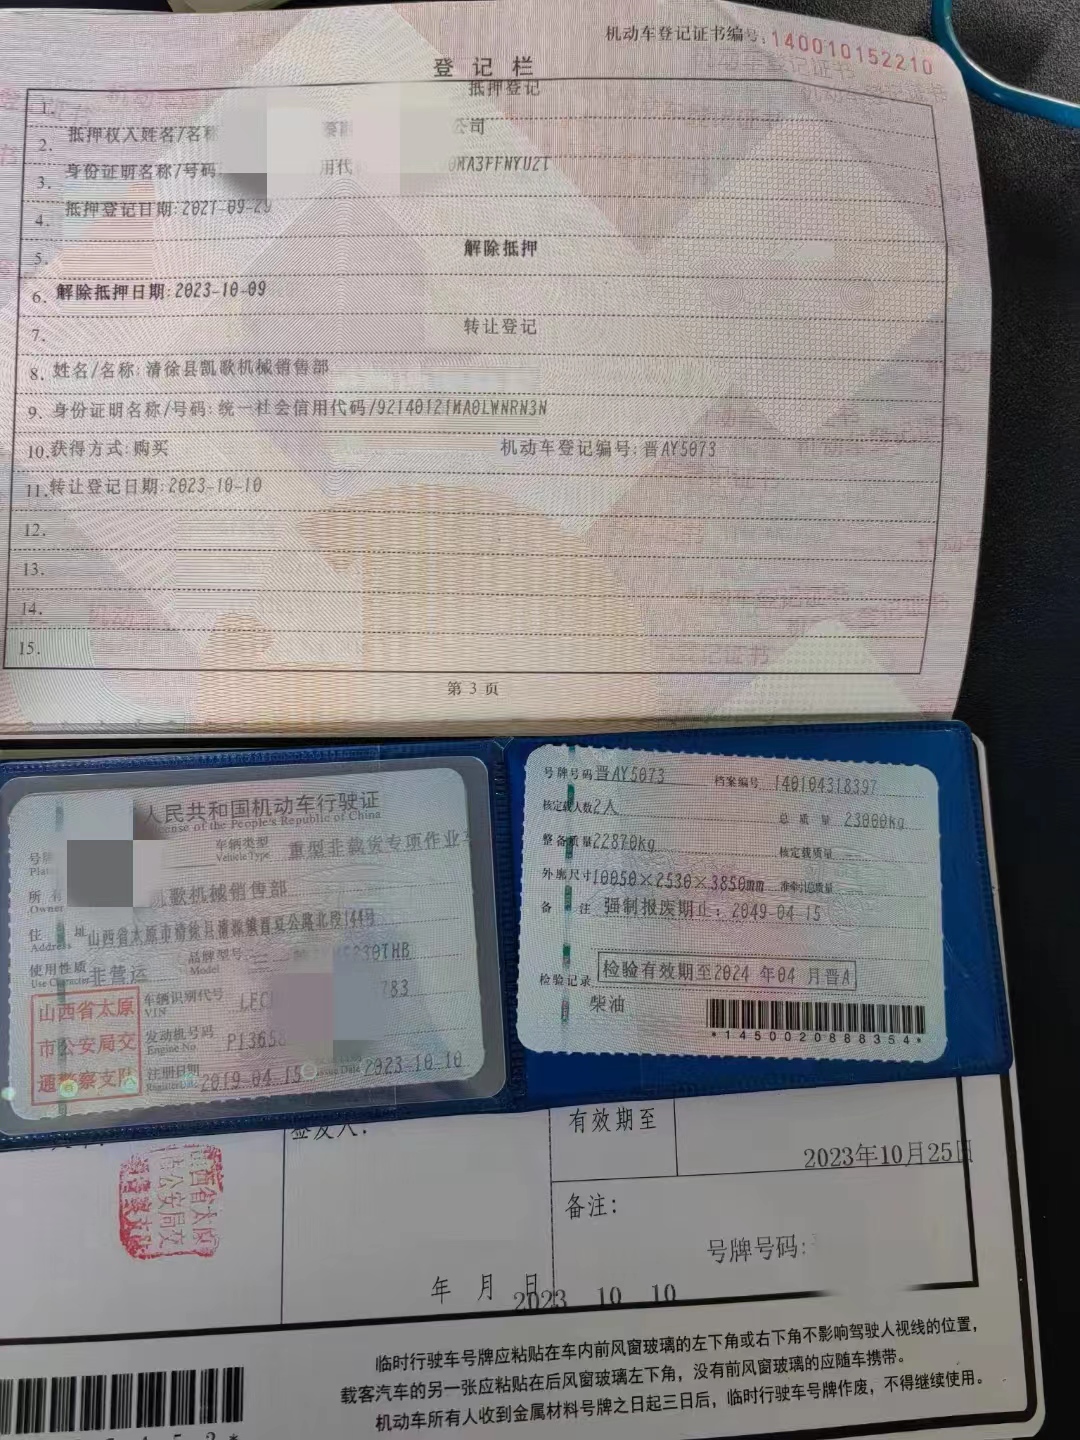 机动车登记证书编号:140010152210
登记栏
1. 抵押登记
2. 抵押权人姓名/名称 公司
3. 身份证明名称/号码: 用代 0MA3FFNYU2T
4. 抵押登记日期:2021-09-29
5. 解除抵押
6. 解除抵押日期:2023-10-09
7. 转让登记
8. 姓名/名称:清徐县凯歌机械销售部
9. 身份证明名称/号码:统一社会信用代码/92140121MA0LWNRN3N
10. 获得方式:购买 机动车登记编号:晋AY5073
11. 转让登记日期:2023-10-10
12.
13.
14.
15.
第 3 页
人民共和国机动车行驶证
License of the People's Republic of China
号牌
车辆类型 重型非载货专项作业车
Vehicle Type
所有 凯歌机械销售部
Owner
住 址 山西省太原市清徐县清源镇晋夏公路北段144号
Address
使用性质 非营运 品牌型号
Use Character Model
5230THB
山西省太原
市公安局交
通警察支队
车辆识别代号 LFC 783
VIN
发动机号码 P1365
Engine No
注册日期 2019-04-15 2023-10-10
Register Date Issue Date
号牌号码 晋AY5073 档案编号 140104318397
核定载人数 2人 总质量 23000kg
整备质量 22870kg 核定载质量
外廓尺寸 10050×2530×3850mm 准牵引总质量
备注 强制报废期止:2049-04-15
检验记录 检验有效期至2024年04月晋A
柴油
*1450020888354*
签发人:
有效期至
2023年10月25日
备注:
号牌号码:
年 月 日
2023 10 10
临时行驶车号牌应粘贴在车内前风窗玻璃的左下角或右下角不影响驾驶人视线的位置,
载客汽车的另一张应粘贴在后风窗玻璃左下角,没有前风窗玻璃的应随车携带。
机动车所有人收到金属材料号牌之日起三日后,临时行驶车号牌作废,不得继续使用。